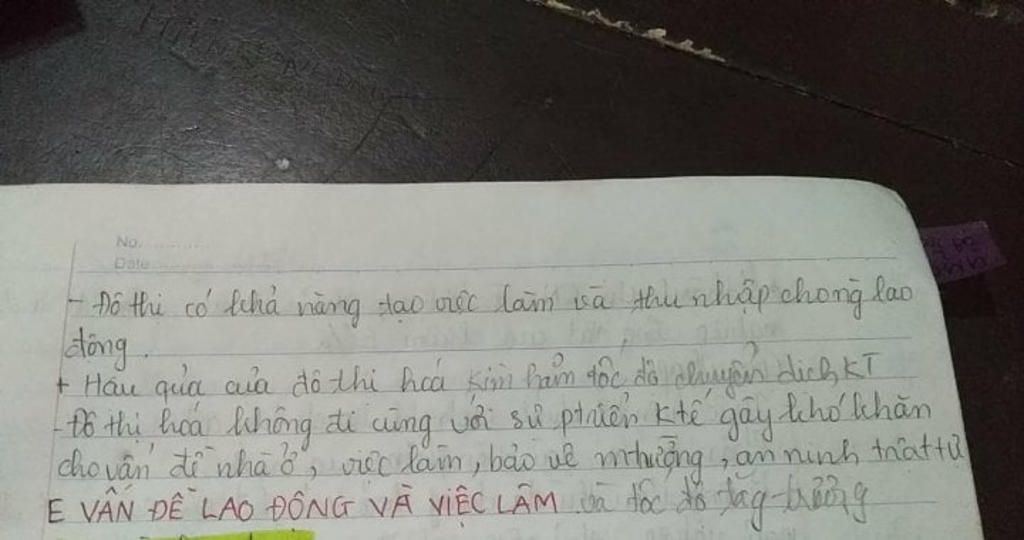 No.
Date
- Đô thị có khả năng tạo việc làm và thu nhập chong lao
động.
+ Hậu qủa của đô thị hoá kìm hãm tốc độ chuyển dịch KT
- Đô thị hoá không đi cùng với sự ptriển ktế gây khó khăn
cho vấn đề nhà ở, việc làm, bảo vệ mtrường, an ninh trật tự
E VẤN ĐỀ LAO ĐỘNG VÀ VIỆC LÀM và tốc độ tăg trưởng